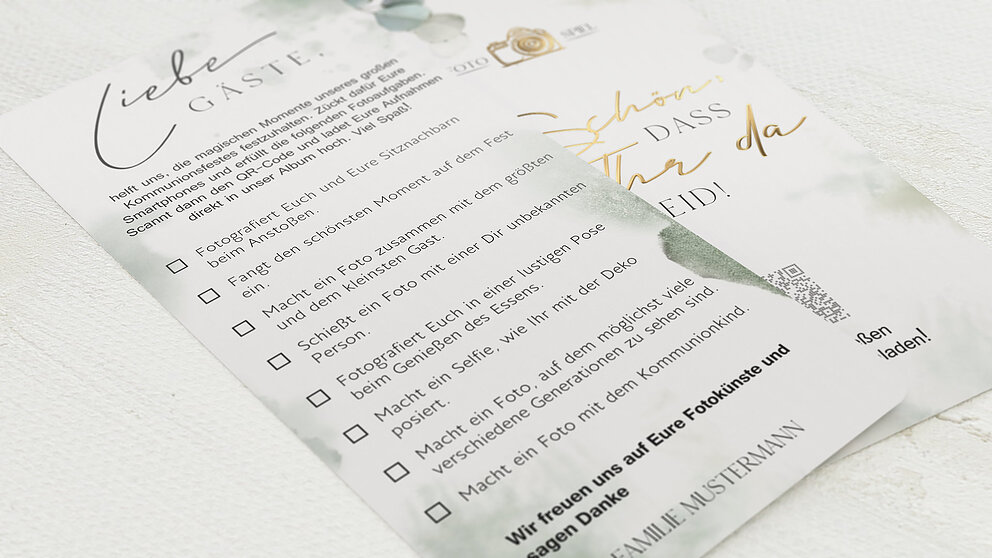 Liebe
GÄSTE,
helft uns, die magischen Momente unseres großen
Kommunionsfestes festzuhalten. Zückt dafür Eure
Smartphones und erfüllt die folgenden Fotoaufgaben.
Scannt dann den QR-Code und ladet Eure Aufnahmen
direkt in unser Album hoch. Viel Spaß!
Fotografiert Euch und Eure Sitznachbarn
beim Anstoßen.
Fangt den schönsten Moment auf dem Fest
ein.
Macht ein Foto zusammen mit dem größten
und dem kleinsten Gast.
Schießt ein Foto mit einer Dir unbekannten
Person.
Fotografiert Euch in einer lustigen Pose
beim Genießen des Essens.
Macht ein Selfie, wie Ihr mit der Deko
posiert.
Macht ein Foto, auf dem möglichst viele
verschiedene Generationen zu sehen sind.
Macht ein Foto mit dem Kommunionkind.
Wir freuen uns auf Eure Fotokünste und
sagen Danke
FAMILIE MUSTERMANN
FOTO SPIEL
Schön,
DASS
Ihr da
EID!
ßen
laden!